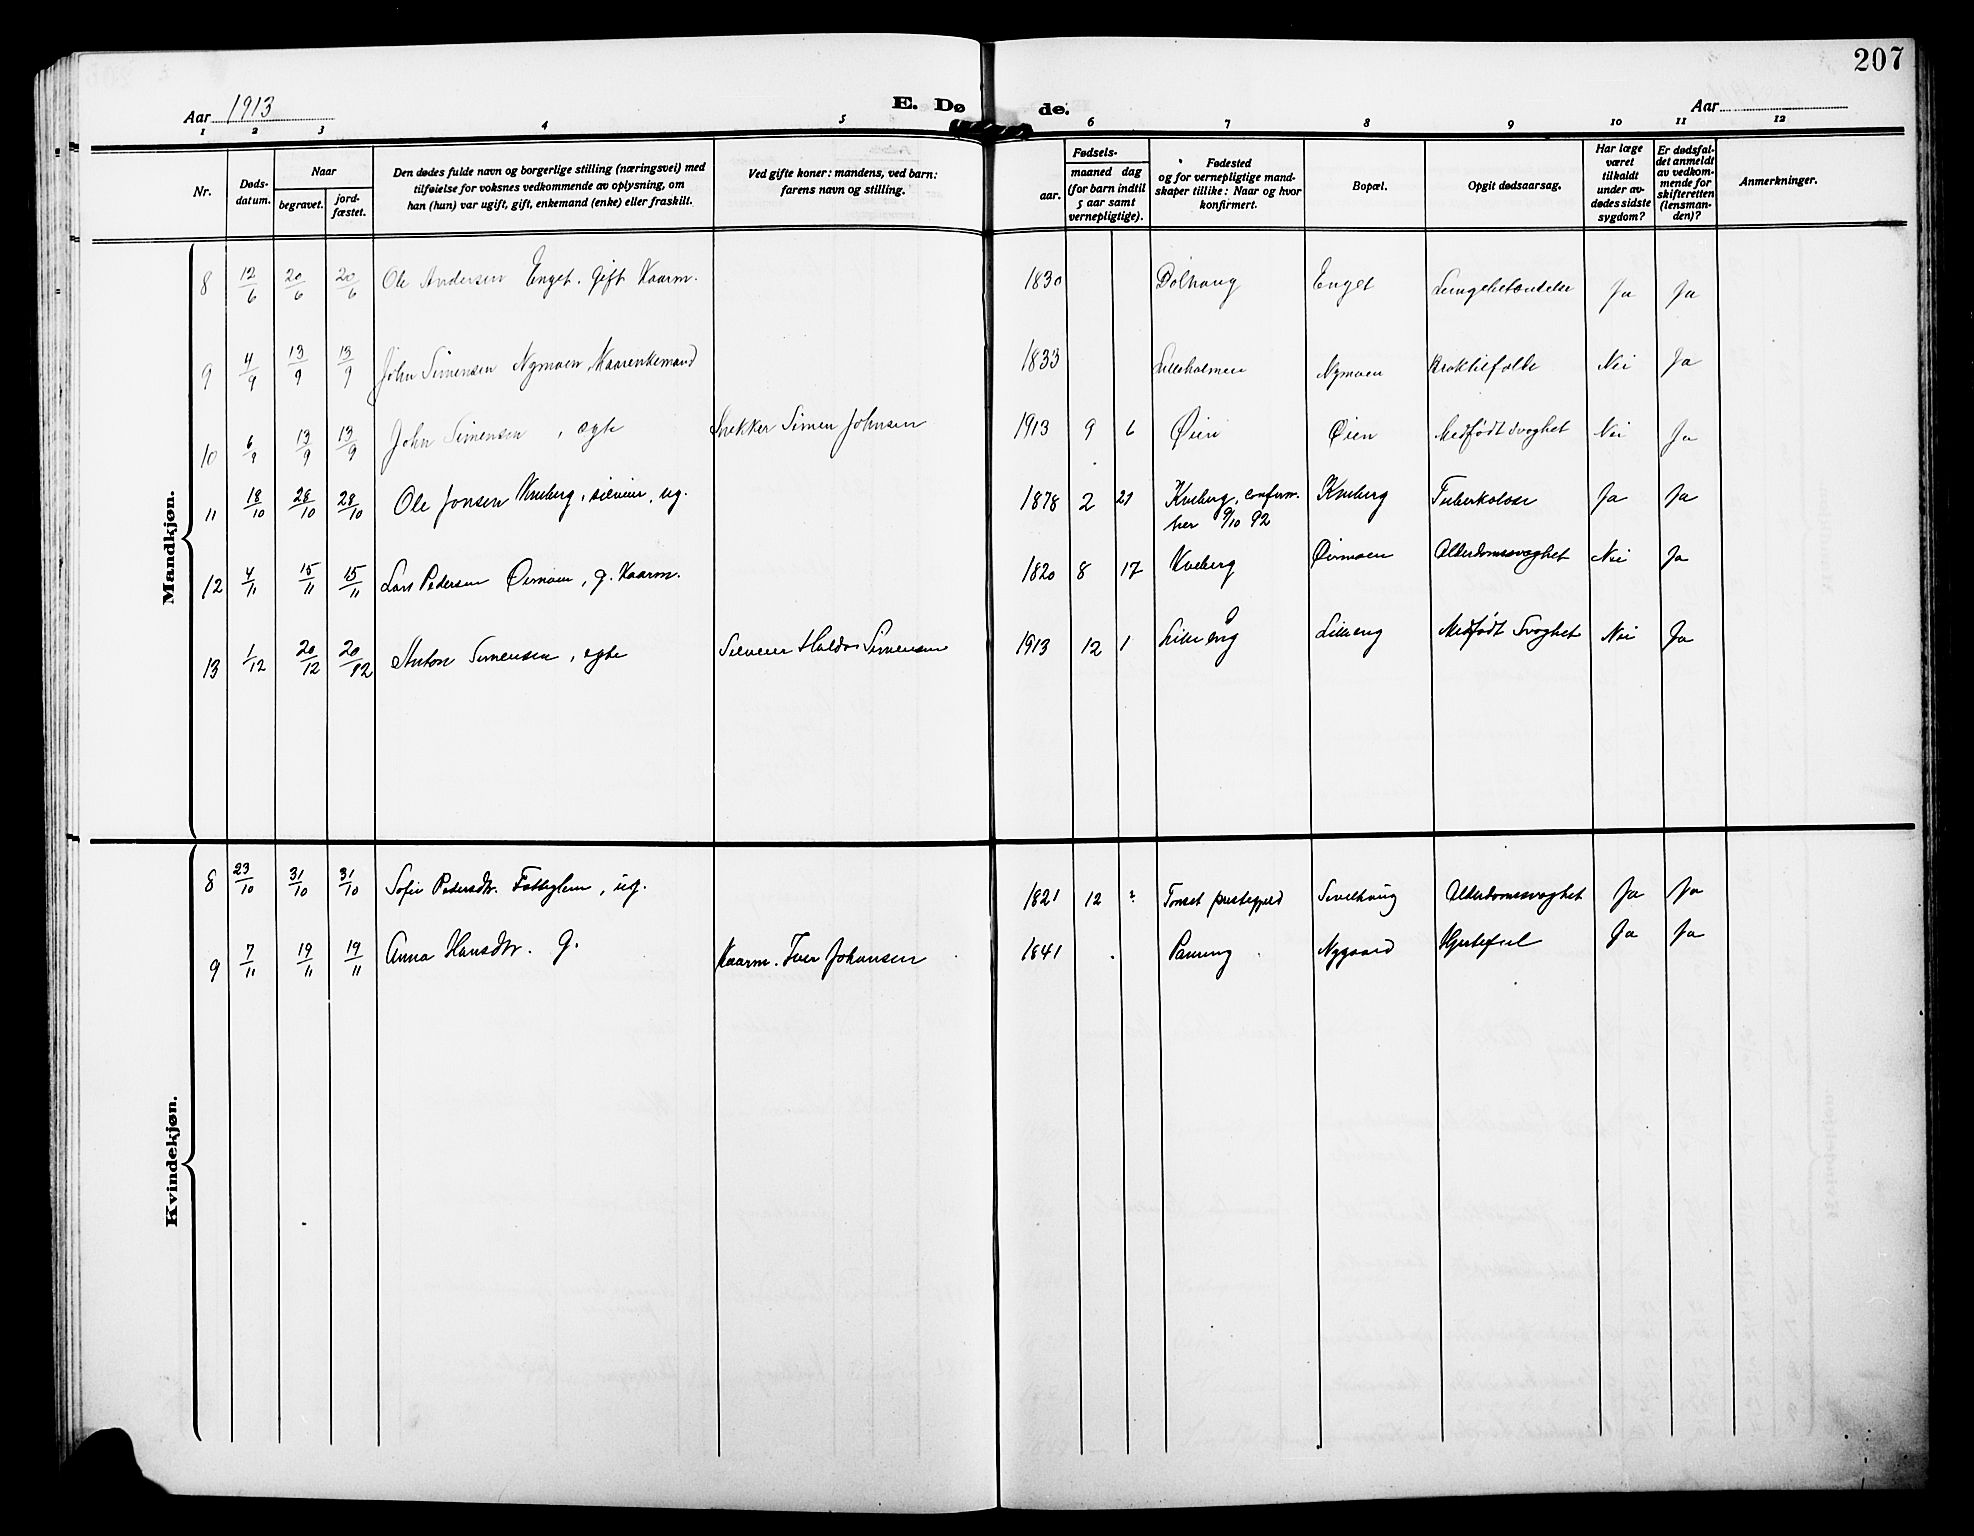 207
Aar 1913
E. Dø de.
Aar
1 2 3 4 5 6 7 8 9 10 11 12
Nr.
Døds-
datum.
Naar
begravet.
jord-
fæstet.
Den dødes fulde navn og borgerlige stilling (næringsvei) med
tilføielse for voksnes vedkommende av oplysning, om
han (hun) var ugift, gift, enkemand (enke) eller fraskilt.
Ved gifte koner: mandens, ved barn:
farens navn og stilling.
Fødsels-
aar.
maaned dag
(for barn indtil
5 aar samt
vernepligtige).
Fødested
og for vernepligtige mand-
skaper tillike: Naar og hvor
konfirmert.
Bopæl.
Opgit dødsaarsag.
Har læge
været
tilkaldt
under av-
dødes sidste
sygdom?
Er dødsfal-
det anmeldt
av vedkom-
mende for
skifteretten
(lensman-
den)?
Anmerkninger.
Mandkjøn.
8 12/6 20/6 20/6 Ole Andersen Enget. Gift Kaarm. 1830 Dølhaug Enget Lungebetændelse Ja Ja
9 4/9 13/9 13/9 John Simensen Nymoen, Kaarenkemand 1833 Lilleholmen Nymoen Nei Ja
10 6/9 13/9 13/9 John Simensen, ægte Snekker Simen Johnsen 1913 9 6 Øien Øien Medfødt svaghet Nei Ja
11 18/10 28/10 28/10 Ole Jonsen Kveberg, selveier, ug. 1878 2 21 Kveberg, confirm. Kveberg Tuberkolose Ja Ja
her 9/10 92
12 4/11 15/11 15/11 Lars Pedersen Øvmoen, g. Kaarm. 1820 8 17 Kveberg Øvmoen Alderdomssvaghet Nei Ja
13 1/12 20/12 20/12 Anton Simensen, ægte Selveier Haldor Simensen 1913 12 1 Lilleeng Lilleeng Medfødt Svaghet Nei Ja
Kvindekjøn.
8 23/10 31/10 31/10 Sofie Pedersdtr. Fattiglem, ug. 1821 12 ? Tonset prestegjeld Alderdomssvaghet Ja Ja
9 7/11 19/11 19/11 Anna Hansdtr. g. Kaarm. Iver Johansen 1841 Nygaard Hjertefeil Ja Ja